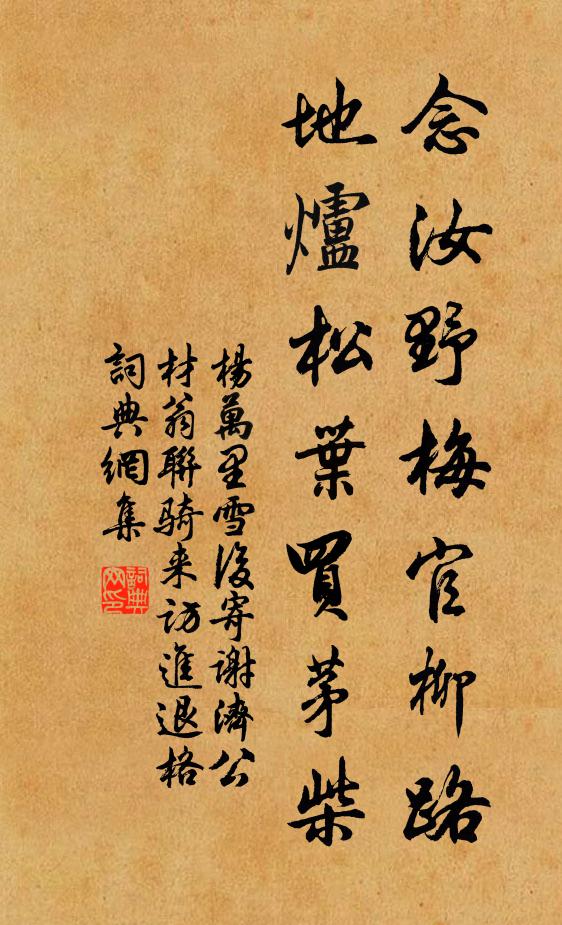 念汝野梅官柳路
地爐松葉買茅柴
楊萬里雪後寄謝濟公
材翁聯騎来訪進退格
詞典網集
詞典
网印